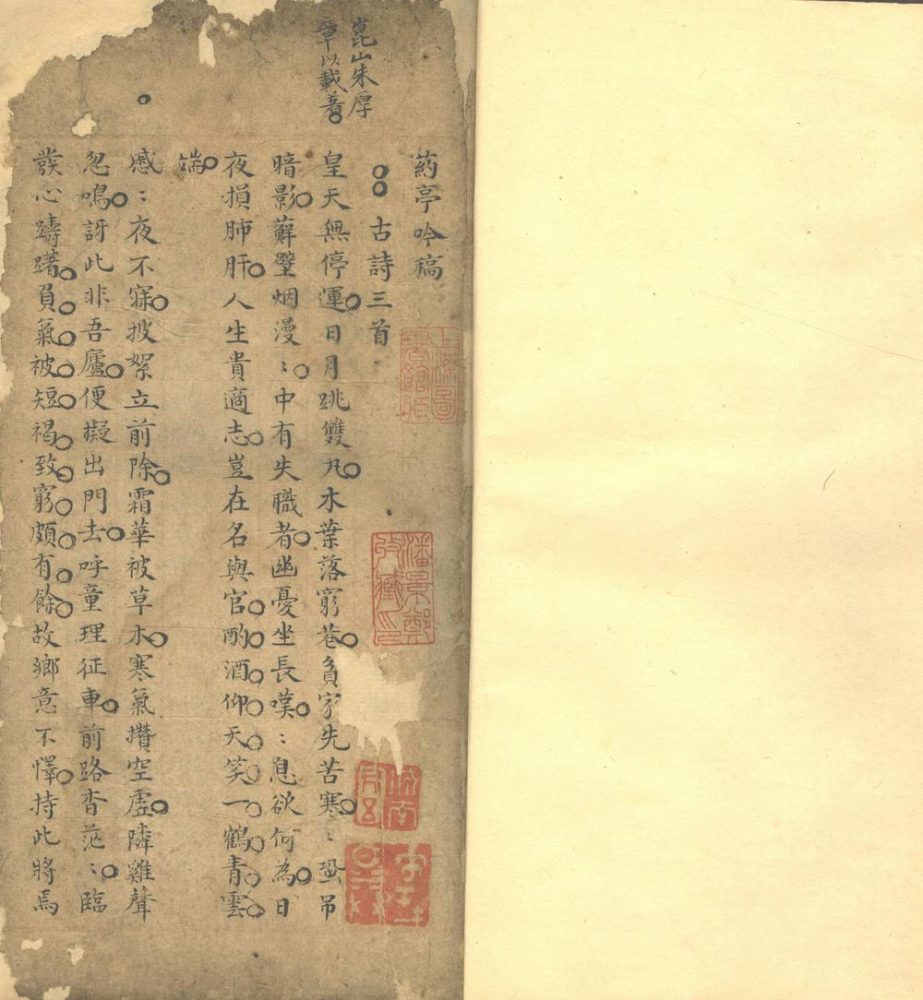 崑山朱厚
章以載著
葯亭吟稿
古詩三首
皇天無停運日月跳雙丸木葉落窮巷貧家先苦寒〻蛩吊
暗影蘚壁烟漫〻中有失職者幽憂坐長嘆〻息欲何為日
夜損肺肝人生貴適志豈在名與官酌酒仰天笑一鶴青雲
端
慼〻夜不寐披絮立前除霜華被草木寒氣攢空虛隣雞聲
忽鳴訝此非吾廬便擬出門去呼童理征車前路杳茫〻臨
發心躊躇負氣被短褐致窮頗有餘故鄉意不懌持此將焉
潘景鄭
收藏印